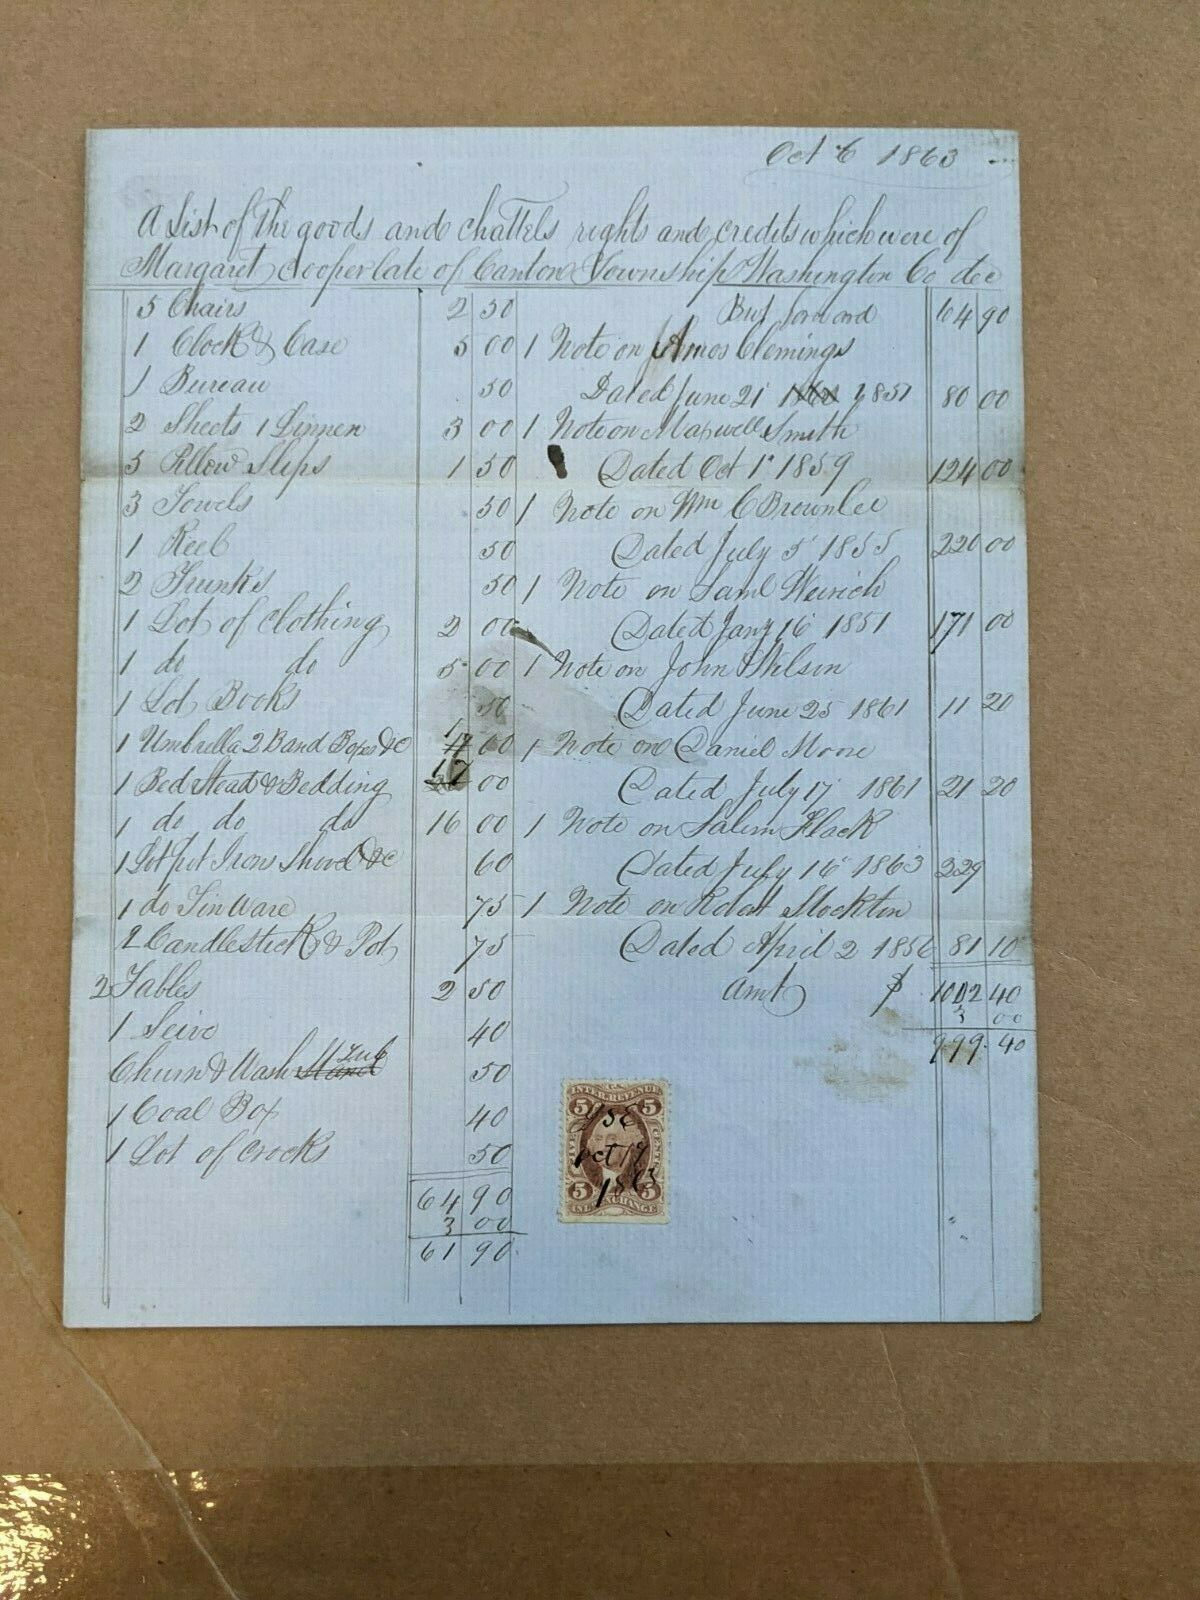 Oct 6 1863
A List of the goods and chattels rights and credits which were of
Margaret Cooper late of Canton Township Washington Co dec
5 Chairs 2 50
1 Clock & Case 5 00
1 Bureau 50
2 Sheets 1 Linnen 3 00
5 Pillow Slips 1 50
3 Towels 50
1 Reel 50
2 Trunks 50
1 Lot of Clothing 2 00
1 do do 5 00
1 Lot Books 50
1 Umbrella 2 Band Boxes &c 00
1 Bed Stead & Bedding 17 00
1 do do do 16 00
1 Lot put Irons Shovel &c 60
1 do Tin Ware 75
2 Candlestick & Pot 75
2 Tables 2 50
1 Seive 40
Churn & Wash Stand Tub 50
1 Coal Box 40
1 Lot of Crocks 50
64 90
3 00
61 90
But forward 64 90
1 Note on Amos Clemings
Dated June 21 1851 80 00
1 Note on Maxwell Smith
Dated Oct 1st 1859 124 00
1 Note on Wm C Brownlee
Dated July 5 1855 220 00
1 Note on Saml Weirich
Dated Jany 16 1851 171 00
1 Note on John Wilson
Dated June 25 1861 11 20
1 Note on Daniel Moore
Dated July 17 1861 21 20
1 Note on Salem Flack
Dated July 16 1863 229
1 Note on Robert Stockton
Dated April 2 1856 81 10
Amt $ 1002 40
3 00
999.40
U.S.
INTER. REVENUE
5 5
FIVE CENTS
Oct 19
1863
5 5
INL. EXCHANGE